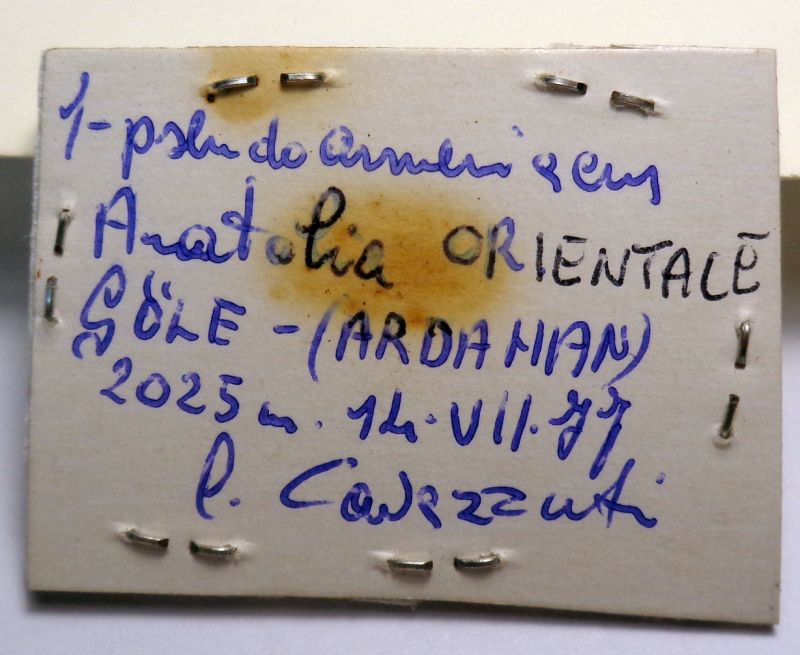 1-pseudoarmeniacus
Anatolia ORIENTALE
GÖLE - (ARDAHAN)
2025 m. 14.VII.77
P. Cavazzuti